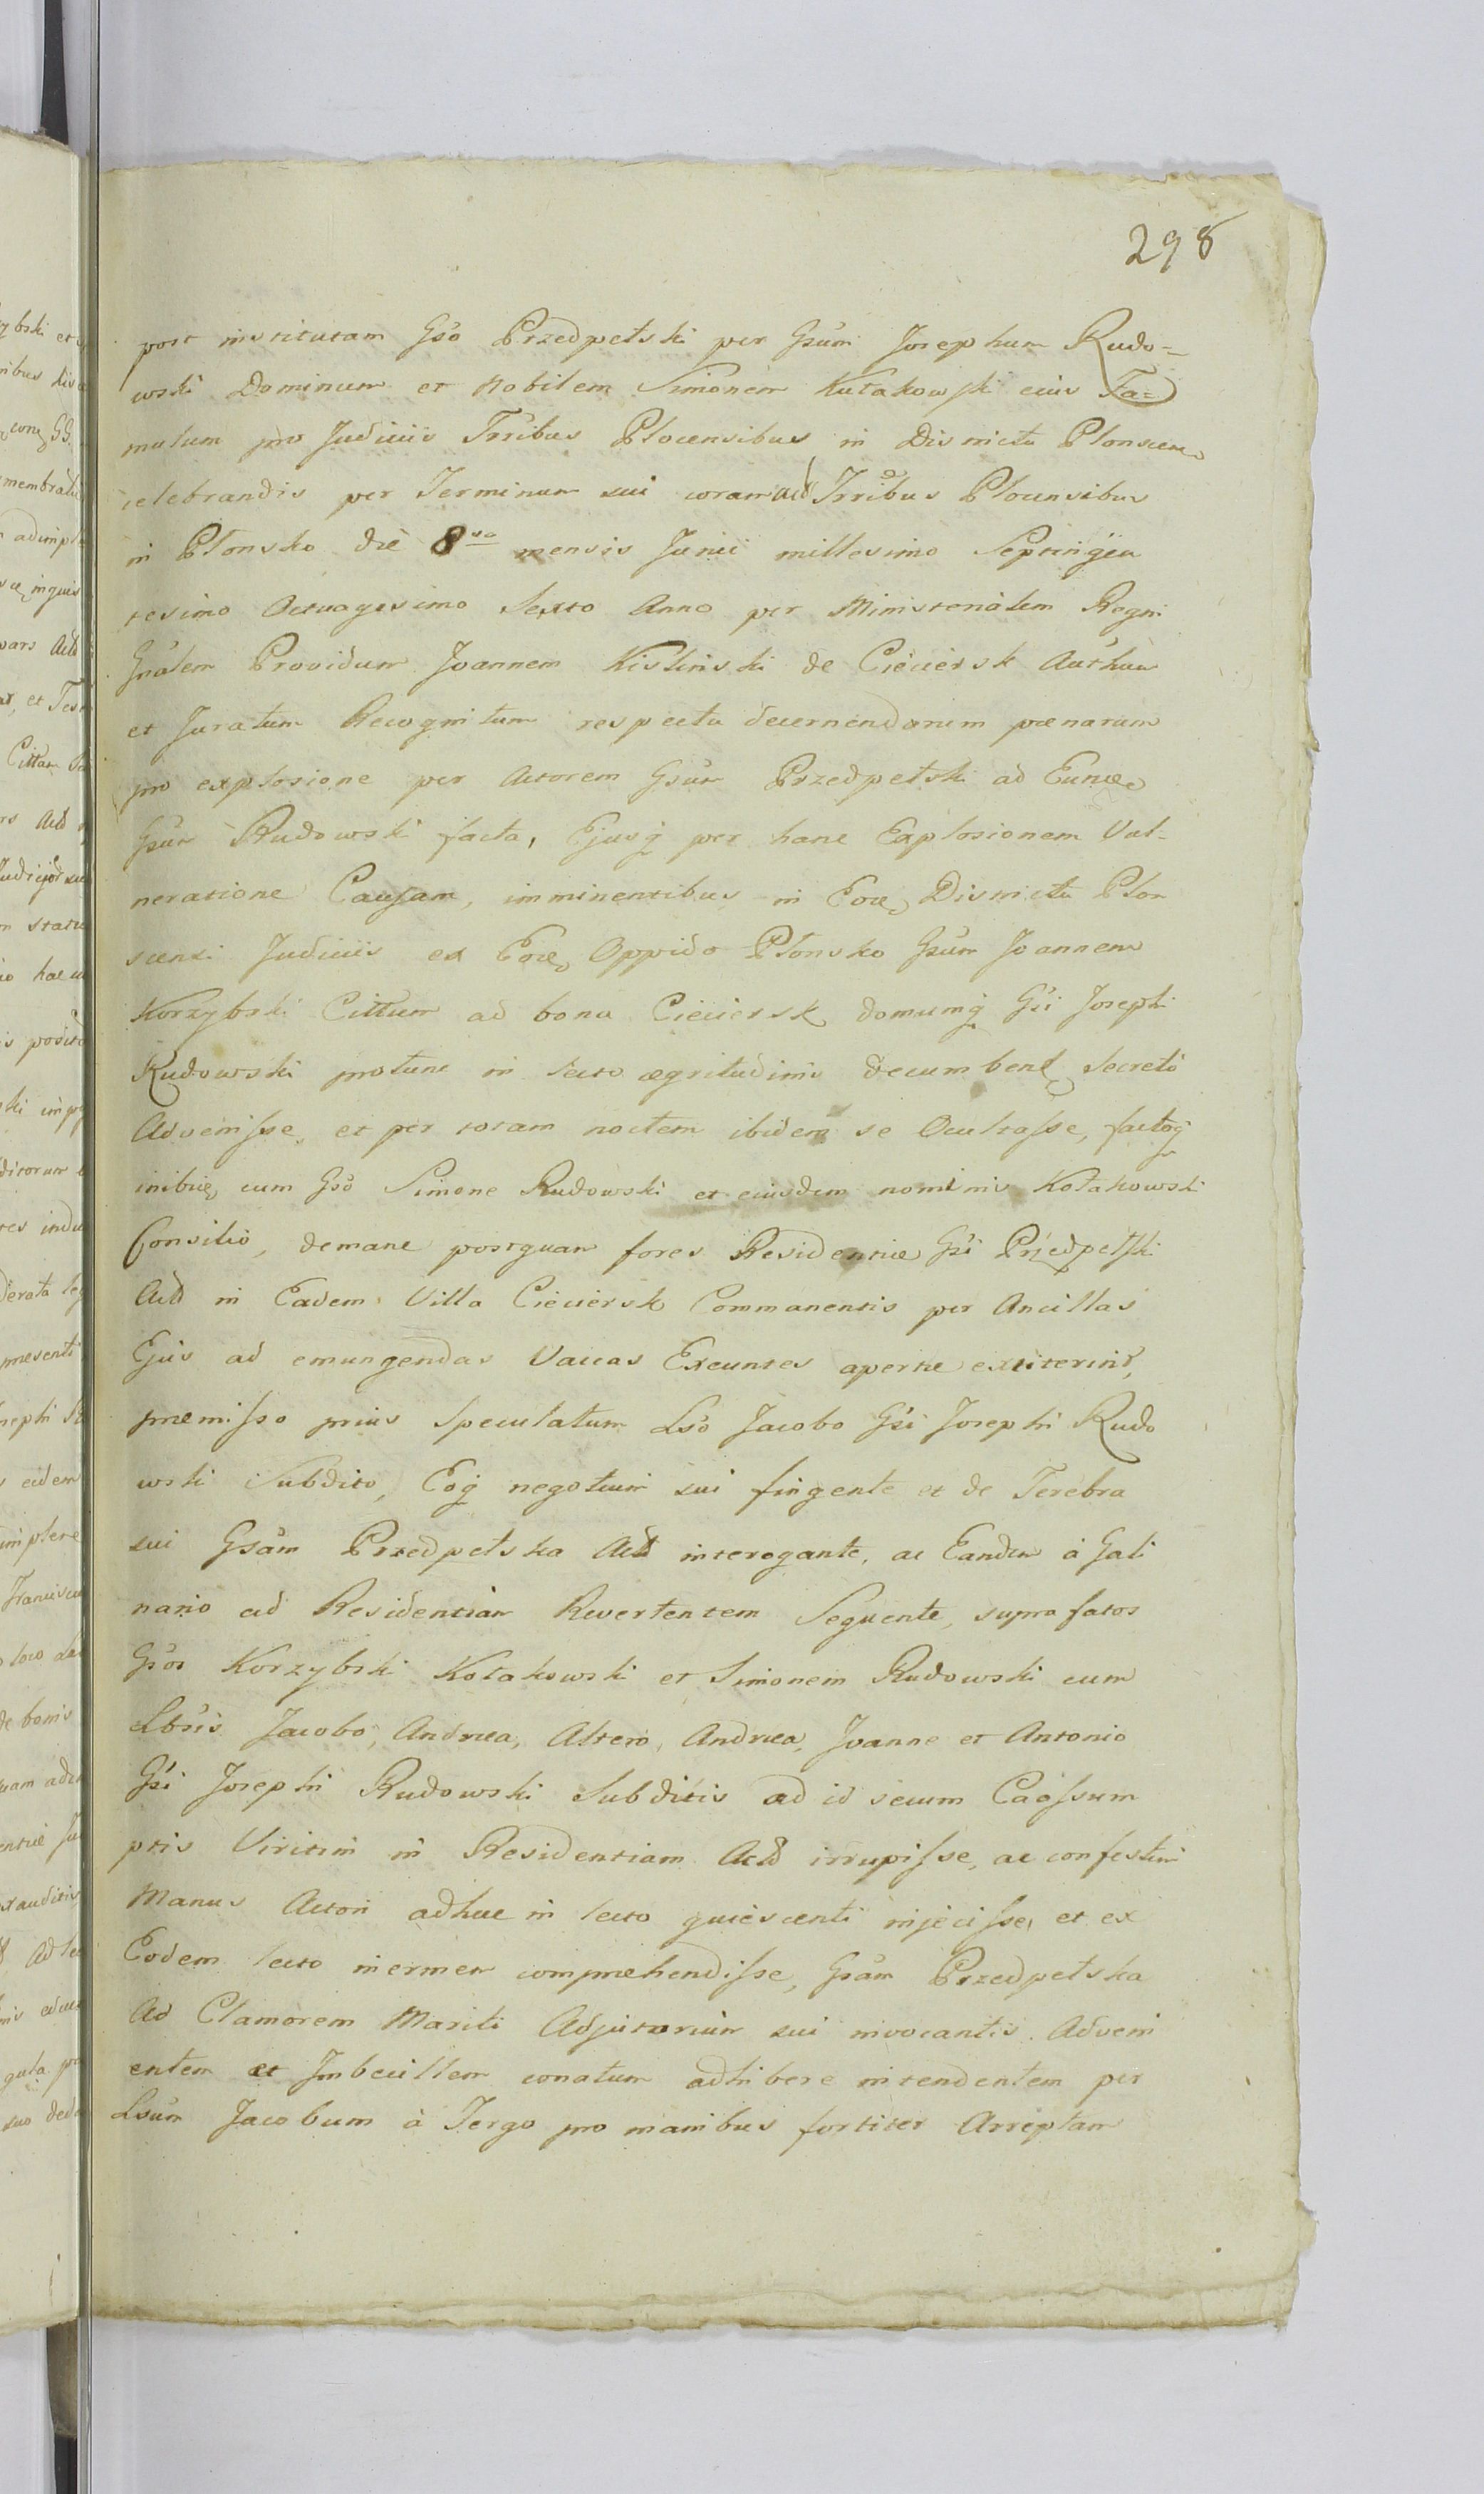 298
post institutam Gsō Przedpełski per Gsum Josephum Rudo=
wski Dominum et Nobilem Simonem Kułakowski eius Fa=
mulum pro Judiciis Trribus Plocensibus in Districtu Plonscen
celebrandis per Terminum sui coram actis Trribus Plocensibus
in Płonsko die 8va mensis Junii millesimo Septingen
tesimo Octuagesimo Sexto Anno per Ministerialem Regni
Gnalem Providum Joannem Kisliński de Ciećiersk Authum
et Juratum Recognitum respectu decernendarum pœnarum
pro explosione per Actorem Gsum Przedpełski ad Eunde
Gsum Rudowski facta, Ejusq per hanc Explosionem Vul-
neratione Causam, imminentibus in Eode Districtu Plon
scensi Judiciis ex Eode Oppido Płonsko Gsum Joannem
Korzybski Cittum ad bona Ciećiersk domumq Gsi Josephi
Rudowski protunc in lecto ægritudinis decumbent Secreto
Advenisse, et per totam noctem ibidem se Ocultasse, factoq
inibiq cum Gsō Simone Rudowski et eiusdem nominis Kołakowski
Consilio, demane postquam fores Residentiæ Gsi Przedpełski
Actō in Eadem Villa Ciećiersk Commanentis per Ancillas
Ejus ad emungendas Vaccas Exeuntes apertæ extiterint,
præmisso prius Speculatum Lsō Jacobo Gsi Josephi Rudo
wski Subdito, Eoq negotium sui fingente et de Terebra
sui Gsam Przedpełska Actō interogante, ac Eandem à Gali
nario ad Residentiam Revertentem Sequente, supra fatos
Gsos Korzybski Kołakowski et Simonem Rudowski cum
Lbsis Jacobo, Andrea, Altero, Andrea, Joanne et Antonio
Gsi Josephi Rudowski Subditis ad id secum Caossum
ptis Viritim in Residentiam Actō irrupisse, ac confestim
Manus Actori adhuc in lecto quiescenti injecisse, et ex
Eodem lecto inermem compræhendisse, Gsam Przedpełska
Ad Clamorem Mariti Adjutorium sui invocantis Adveni
entem et Imbecillem conatum adhibere intendentem per
Lsum Jacobum à Tergo pro manibus fortiter Arreptam